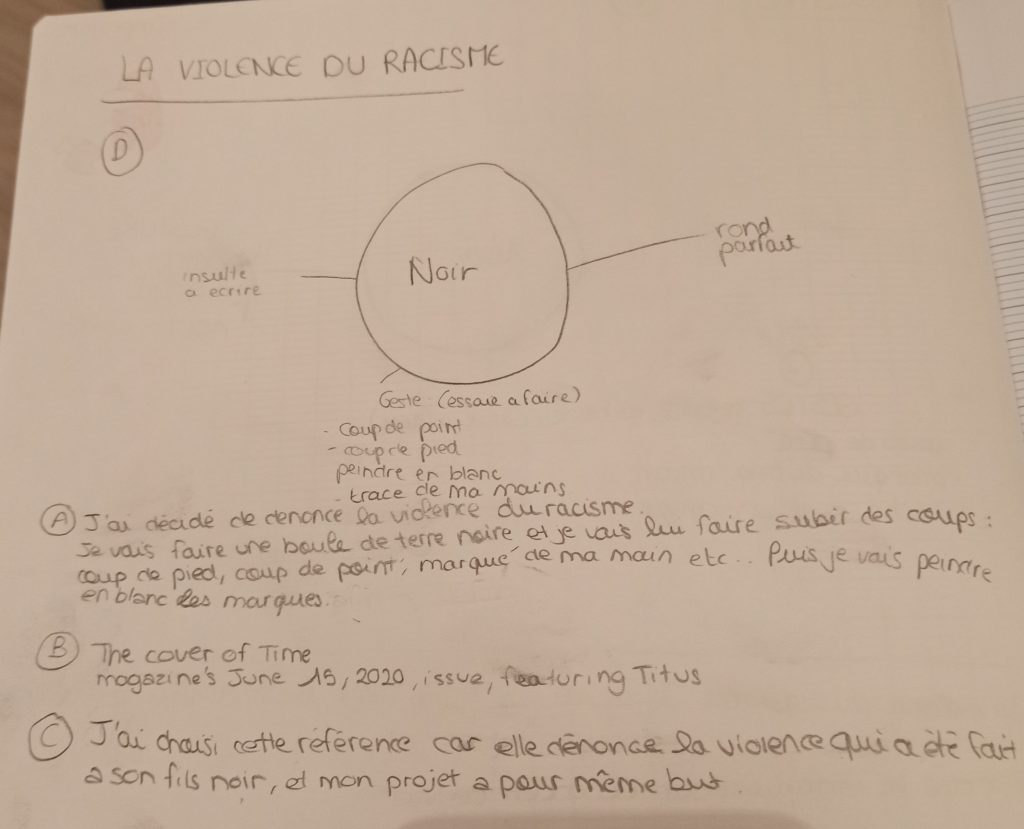 LA VIOLENCE DU RACISME
D
Noir
rond
parfait
insulte
a ecrire
Geste (essaie a faire)
- Coup de point
- coup de pied
peindre en blanc
- trace de ma mains
A J'ai décidé de denonce la violence du racisme.
Je vais faire une boule de terre noire et je vais lui faire subir des coups :
coup de pied, coup de point, marque de ma main etc... Puis je vais peindre
en blanc les marques.
B The cover of Time
magazine's June 15, 2020, issue, featuring Titus
C J'ai choisi cette référence car elle dénonce la violence qui a été fait
a son fils noir, et mon projet a pour même but.